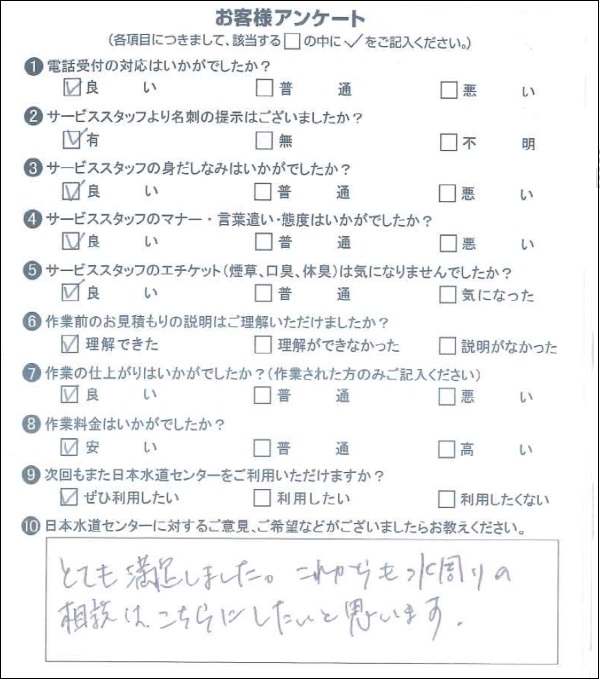 お客様アンケート
(各項目につきまして、該当する□の中に✓をご記入ください。)
❶ 電話受付の対応はいかがでしたか?
☑良い □普通 □悪い
❷ サービススタッフより名刺の提示はございましたか?
☑有 □無 □不明
❸ サービススタッフの身だしなみはいかがでしたか?
☑良い □普通 □悪い
❹ サービススタッフのマナー・言葉遣い・態度はいかがでしたか?
☑良い □普通 □悪い
❺ サービススタッフのエチケット(煙草、口臭、体臭)は気になりませんでしたか?
☑良い □普通 □気になった
❻ 作業前のお見積もりの説明はご理解いただけましたか?
☑理解できた □理解ができなかった □説明がなかった
❼ 作業の仕上がりはいかがでしたか?(作業された方のみご記入ください)
☑良い □普通 □悪い
❽ 作業料金はいかがでしたか?
☑安い □普通 □高い
❾ 次回もまた日本水道センターをご利用いただけますか?
☑ぜひ利用したい □利用したい □利用したくない
❿ 日本水道センターに対するご意見、ご希望などがございましたらお教えください。
とても満足しました。これからも水周りの
相談は、こちらにしたいと思います。